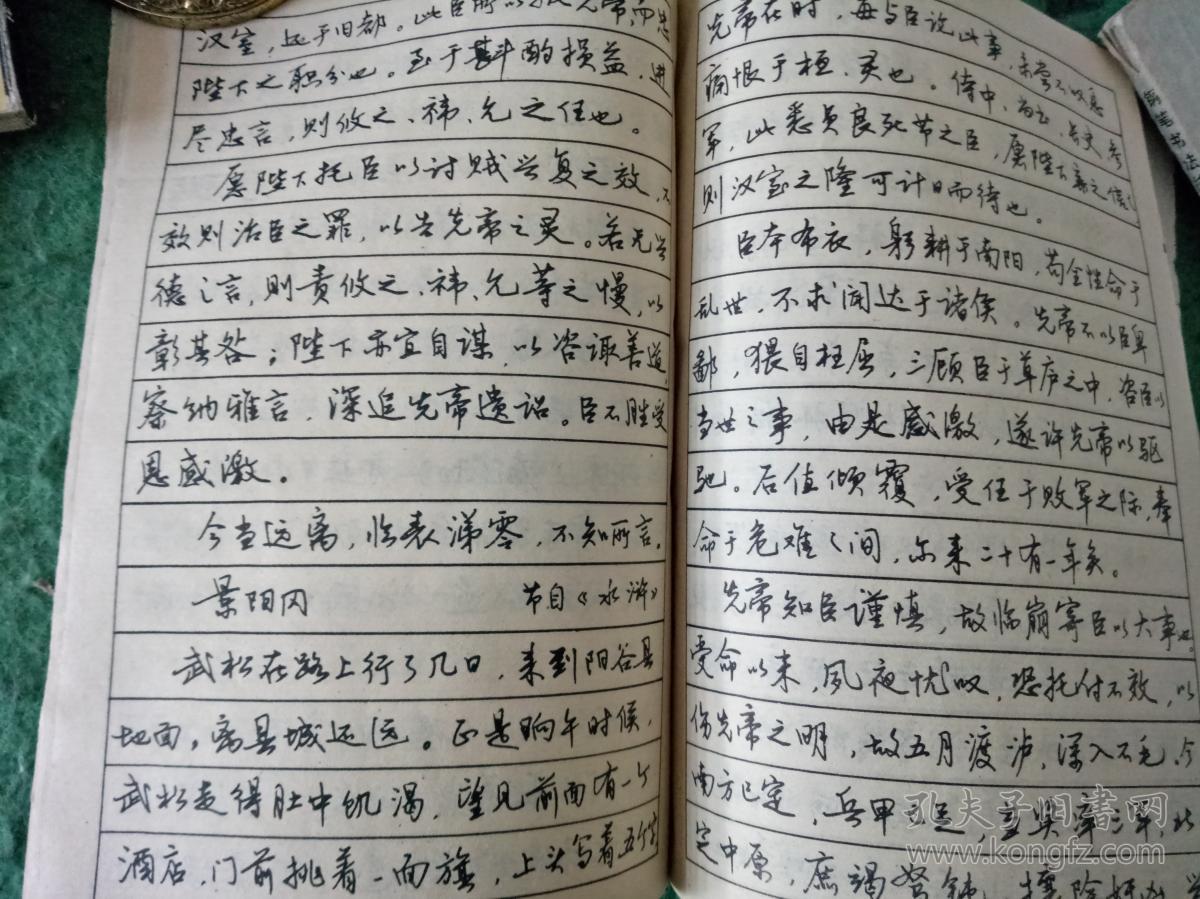 先帝在时，每与臣说此事，未尝不叹息
痛恨于桓、灵也。侍中、尚书、长史、参
军，此悉贞良死节之臣，愿陛下亲之信之
则汉室之隆可计日而待也。
臣本布衣，躬耕于南阳，苟全性命于
乱世，不求闻达于诸侯。先帝不以臣卑
鄙，猥自枉屈，三顾臣于草庐之中，咨臣以
当世之事，由是感激，遂许先帝以驱
驰。后值倾覆，受任于败军之际，奉
命于危难之间，尔来二十有一年矣。
先帝知臣谨慎，故临崩寄臣以大事也。
受命以来，夙夜忧叹，恐托付不效，以
伤先帝之明，故五月渡泸，深入不毛，今
南方已定，兵甲已足，
定中原，庶竭驽钝，攘除奸凶，兴
汉室，还于旧都。此臣所以报先帝而忠
陛下之职分也。至于斟酌损益，进
尽忠言，则攸之、祎、允之任也。
愿陛下托臣以讨贼兴复之效，不
效则治臣之罪，以告先帝之灵。若无兴
德之言，则责攸之、祎、允等之慢，以
彰其咎；陛下亦宜自谋，以咨诹善道，
察纳雅言，深追先帝遗诏。臣不胜受
恩感激。
今当远离，临表涕零，不知所言。
景阳冈 节自《水浒》
武松在路上行了几日，来到阳谷县
地面，离县城还远。正是晌午时候，
武松走得肚中饥渴，望见前面有一个
酒店，门前挑着一面旗，上头写着五个字
孔夫子旧书网
www.kongfz.com